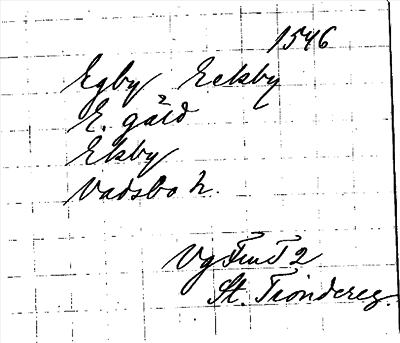 1546
Egby Eckby
E. gård
Ekby
Vadsbo h.
Vg FmT 2
St. Tiondereg.